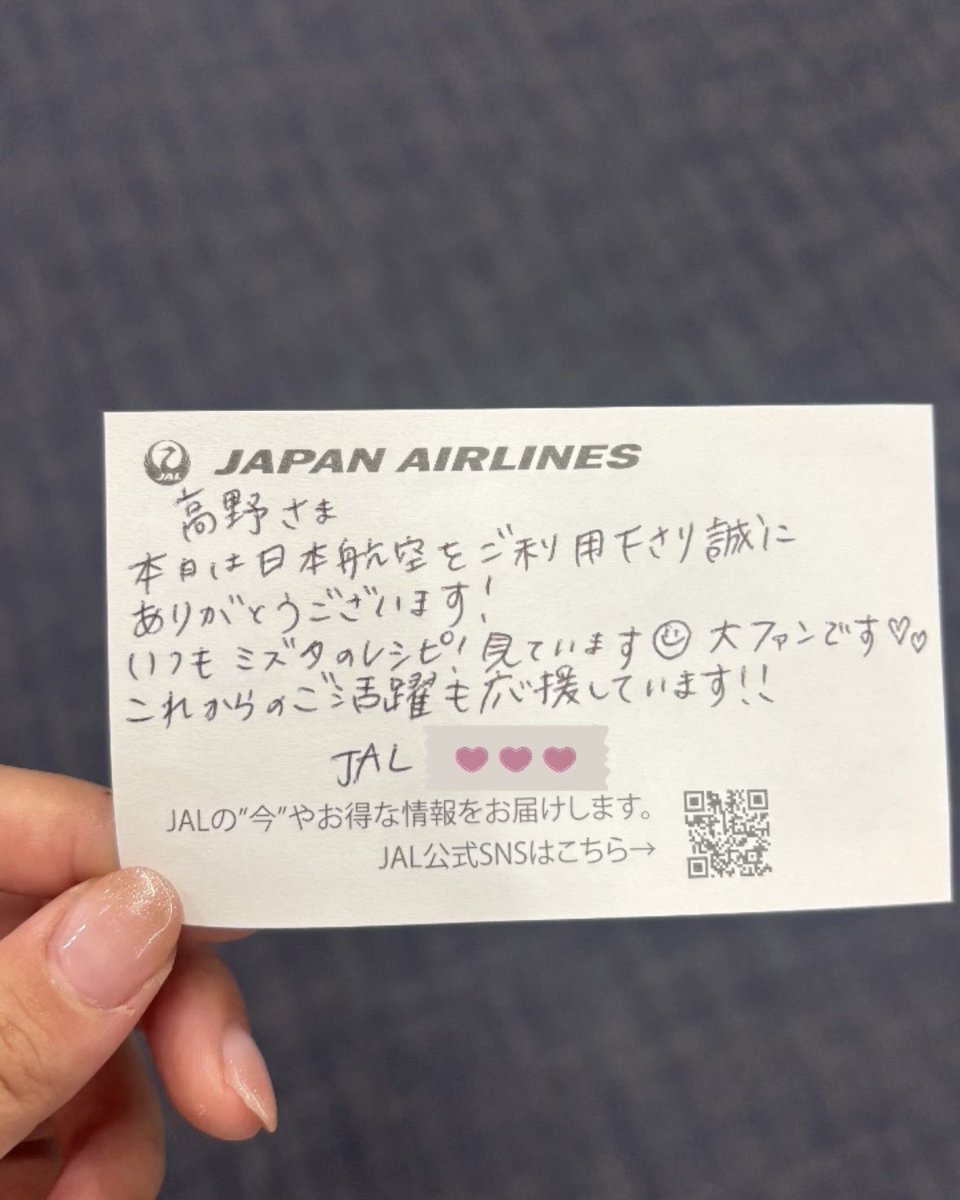 JAL
JAPAN AIRLINES
高野さま
本日は日本航空をご利用下さり誠に
ありがとうございます!
いつも ミズタのレシピ! 見ています☺ 大ファンです♡♡
これからのご活躍も応援しています!!
JAL
JALの"今"やお得な情報をお届けします。
JAL公式SNSはこちら→